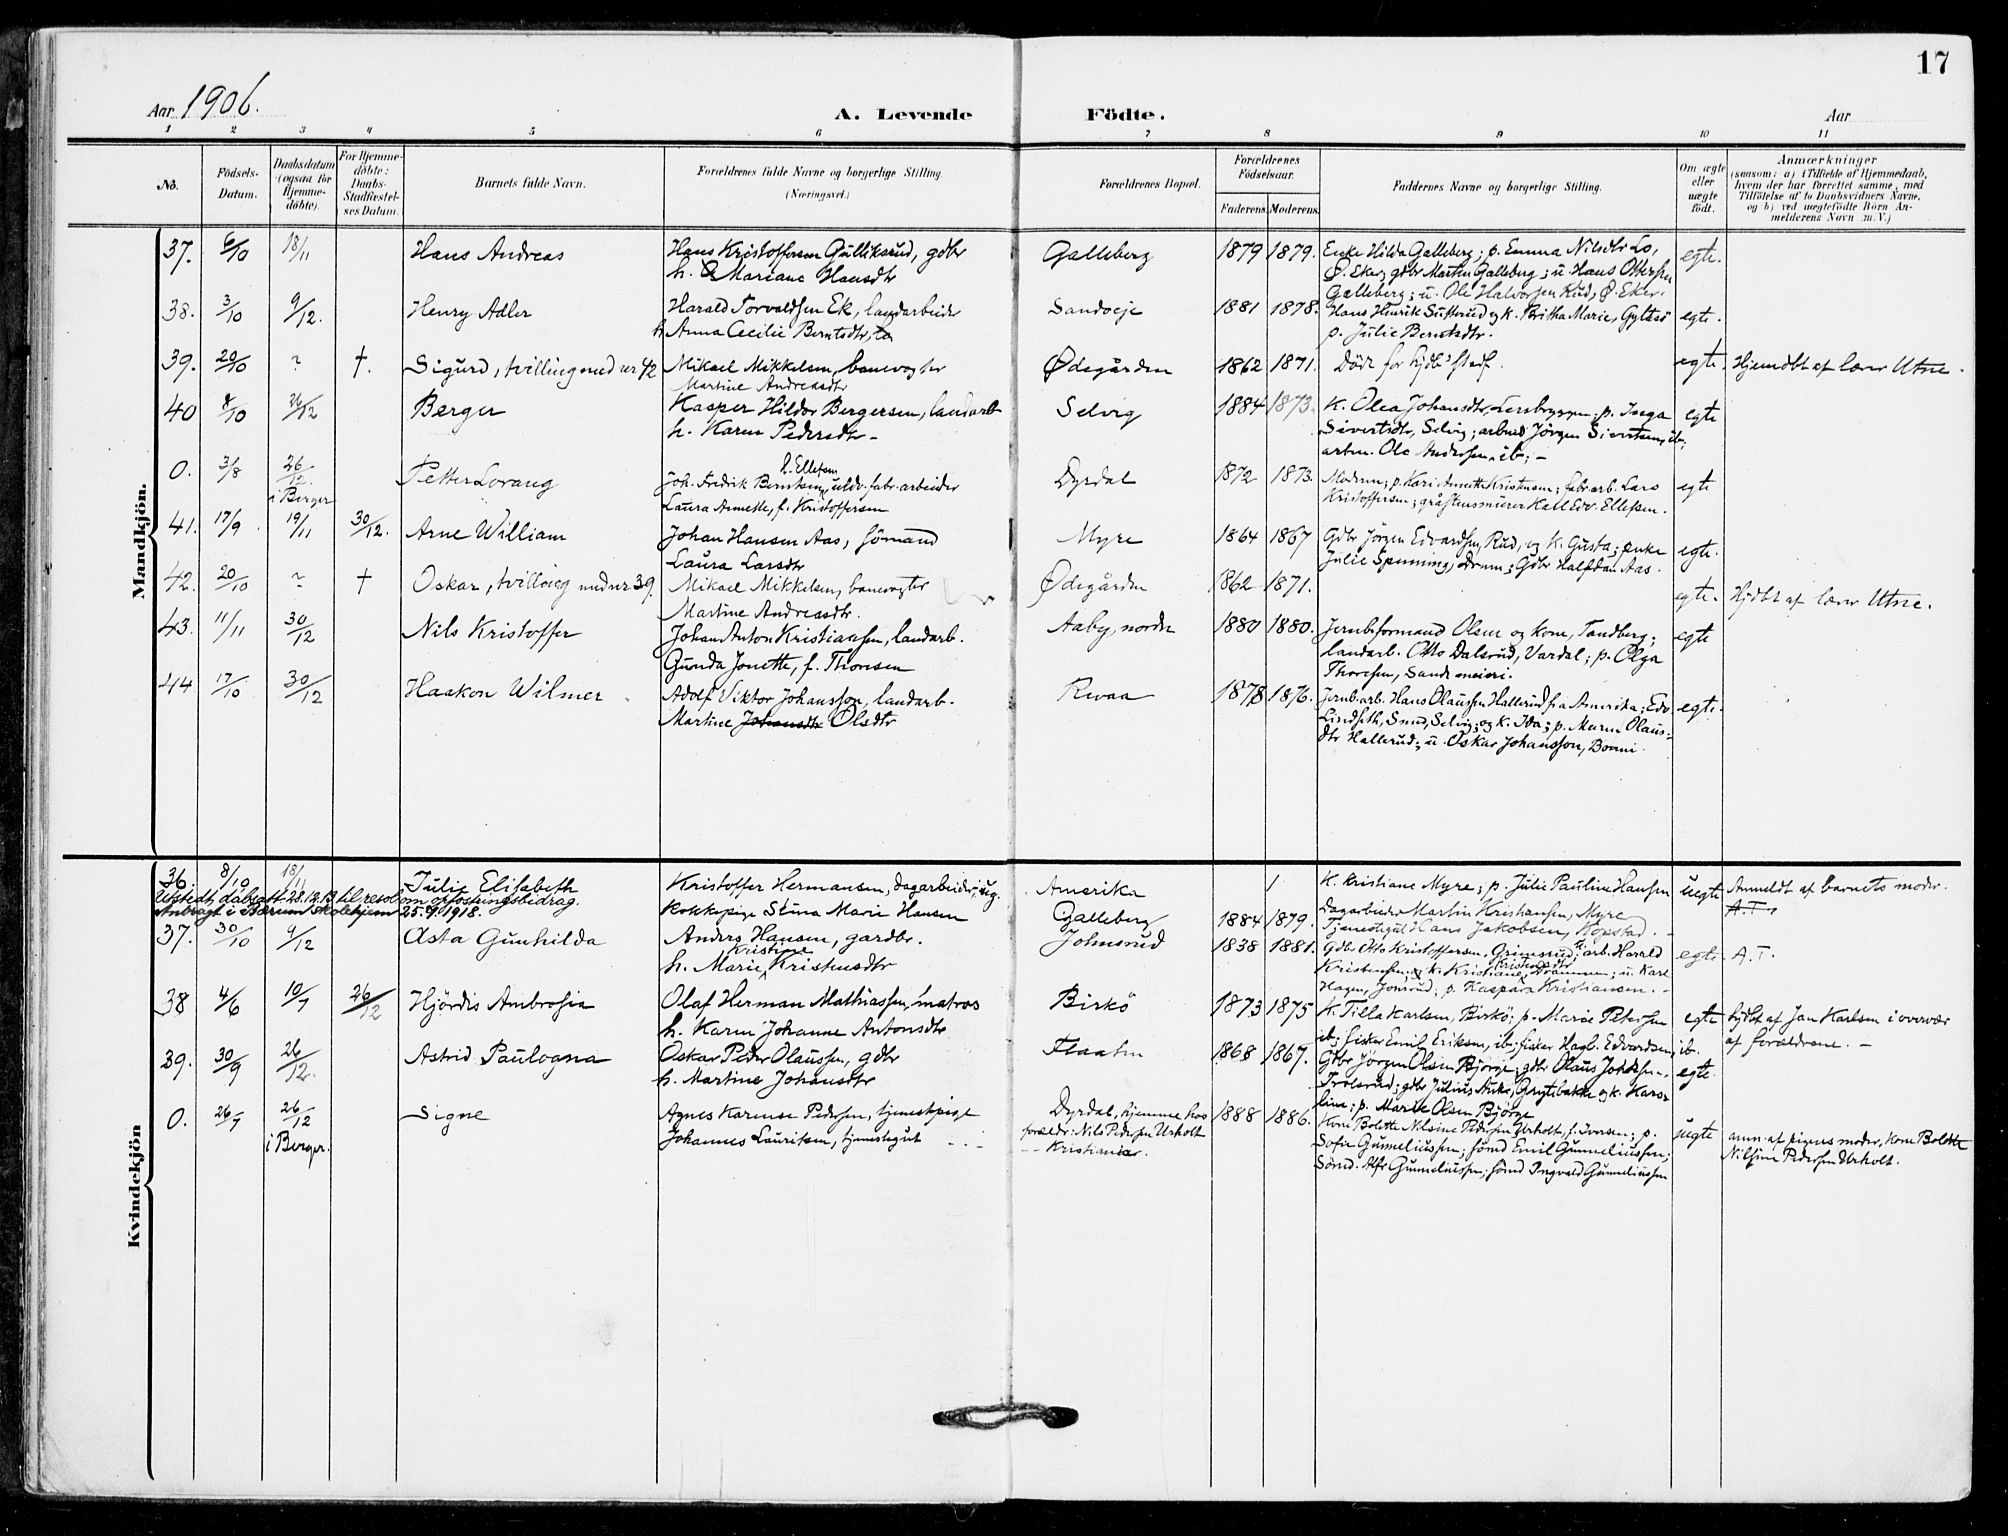 17
Aar 1906.
A. Levende Födte.
Aar
1 2 3 4 5 6 7 8 9 10 11
No.
Födsels-Datum.
Daabsdatum (ogsaa for Hjemme-döbte).
For Hjemme-döbte: Daabs-Stadfæstel-ses Datum.
Barnets fulde Navn.
Forældrenes fulde Navne og borgerlige Stilling.
(Næringsvei.)
Forældrenes Bopæl.
Forældrenes Födselsaar.
Faderens. Moderens.
Faddernes Navne og borgerlige Stilling.
Om ægte eller uægte födt.
Anmærkninger
(saasom: a) i Tilfælde af Hjemmedaab,
hvem der har forrettet samme, med
Tilföielse af to Daabsvidners Navne,
og b) ved uægtefödte Börn An-
melderens Navn m. V.)
Mandkjön.
37. 6/10 18/11 Hans Andreas Hans Kristoffersen Gulliksrud, gdbr Galleberg 1879 1879. Enke Hilda Galleberg; p. Emma Nilsdtr Lo, egte.
h. Mariane Hansdtr Ø. Eker; gdbr Martin Galleberg; u. Hans Ottersen
Galleberg; u. Ole Halvorsen Rud, Ø. Eker.
38. 3/10 9/12. Henry Adler Harald Torvaldsen Ek, landarbeider Sandveje 1881 1878. Hans Henrik Sutterud og k. Britha Marie, egte.
h Anna Cecilie Berntsdtr, p. Julie Berntsdtr.
39. 20/10 ? †. Sigurd, tvilling med nr 42 Mikael Mikkelsen, banevogter Ødegården 1862 1871. Död før stadf. egte. Hjemdbt af lærer Utne.
Martine Andreasdtr
40 8/10 26/12 Berger Kasper Hildor Bergersen, landarb Selvig 1884 1873. K. Olea Johansdtr, p. Inga egte
h. Karen Pedersdtr - Sivertsdtr, Selvig; arbmd Jörgen Sivertsen, ib;
arbm. Ole Andersen, ib; -
0. 3/8 26/12 i Berger Petter Lorang Joh. Fredrik Berntsen, f. Ellefsen uldv. fabr. arbeider Dyrdal 1872 1873. Moderen; p. Kari Annette Kristensen; fabr. arb. Lars egte
Laura Annette, f. Kristoffersen Kristoffersen; gråstensmurer Karl Edv. Ellefsen.
41. 17/9 19/11 30/12. Arne William Johan Hansen Aas, sömand Myre 1864 1867 Gdbr Jörgen Edvardsen, Rud, og k. Gusta; enke egte.
Laura Larsdtr Julie Spenning, Dram; Gdbr Halfdan Aas.
42. 20/10 ? † Oskar, tvilling med nr 39. Mikael Mikkelsen, banevogter Ødegården 1862 1871. egte. Hjdbt af lærer Utne.
Martine Andreasdtr.
43. 11/11 30/12 Nils Kristoffer Johan Anton Kristiansen, landarb. Aaby, nordre 1880 1880. Jernbformand Olsen og kone, Tandberg; egte
Gunda Jonette, f. Thorsen landarb. Otto Dalsrud, Vardal; p. Olga
Thoresen, Sande meieri.
44 17/10 30/12 Haakon Wilmer Adolf Viktor Johansson, landarb. Revaa 1878 1876. Jernb. arb. Hans Olaussen Hallerud fra Amerika; Edv. egte.
Martine Johansdtr Olsdtr Lindseth, Smed, Selvig; og k. Ida; p. Maren Olaus-
dtr Hallerud; u. Oskar Johansson,
Kvindekjön
36. 8/10 18/11 Julie Elisabeth Kristoffer Hermansen, dagarbeider, ug. Amerika K. Kristiane Myre; p. Julie Pauline Hansen uegte Anmeldt af barnets moder.
Utstedt dåbsatt. 28.12.13 til resol om opfostringsbidrag.
Anbragt i Bærum skolehjem 25.9.1918.
Kokkepige Stina Marie Hansen Galleberg 1884 1879. Dagarbeider Martin Kristiansen, Myre A.T.
Tjenestegut Hans Jakobsen, Kopstad.
37. 30/10 9/12 Asta Gunhilda Anders Hansen, gardbr. Johnsrud 1838 1881. Gdbr Otto Kristoffersen, Grimsrud; arb. Harald egte. A.T.
h. Marie Kristine Kristensdtr Kristensen; k. Kristiane Kristensdtr u. Karl
Hagen, Jonsrud; p. Kaspara Kristiansen.
38 4/6 10/7 26/12 Hjördis Ambrosia Olaf Herman Mathiassen, matros Birkö 1873 1875 K. Tilla Karlsen, Birkö; p. Marie Petersen egte hjdbt af Jan Karlsen i overvær
h. Karen Johanne Antonsdtr ib; fisker Emil Eriksen, ib; fisker Hagb. Edvardsen, ib. af forældrene. -
39. 30/9 26/12. Astrid Paulogna Oskar Peder Olaussen, gdbr Flaaten 1868 1867. Gdbr Jörgen Olsen Bjørge; gdbr Olaus Johansen egte.
h. Martine Johansdtr Trolsrud; gdbr Julius Auke, Grytebakke og k. Karo-
line; p. Marie Olsen Björge
0. 26/7 26/12 i Berger. Signe Agnes Karense Pedersen, tjenestpige Dyrdal, hjemme hos 1888 1886. Kone Bolette Nilsine Pedersen Urholt, f. Iversen; p. uegte anm. af pigens moder, kone Bolette
Johannes Lauritsen, tjenestegut forældr: Nils Pedersen Urholt Sofie Gunneliussen; sömd Emil Gunneliussen; Nilsine Pedersen Urholt.
Kristiania. Sömd. Alfr Gunneliussen; sömd Ingvald Gunneliussen